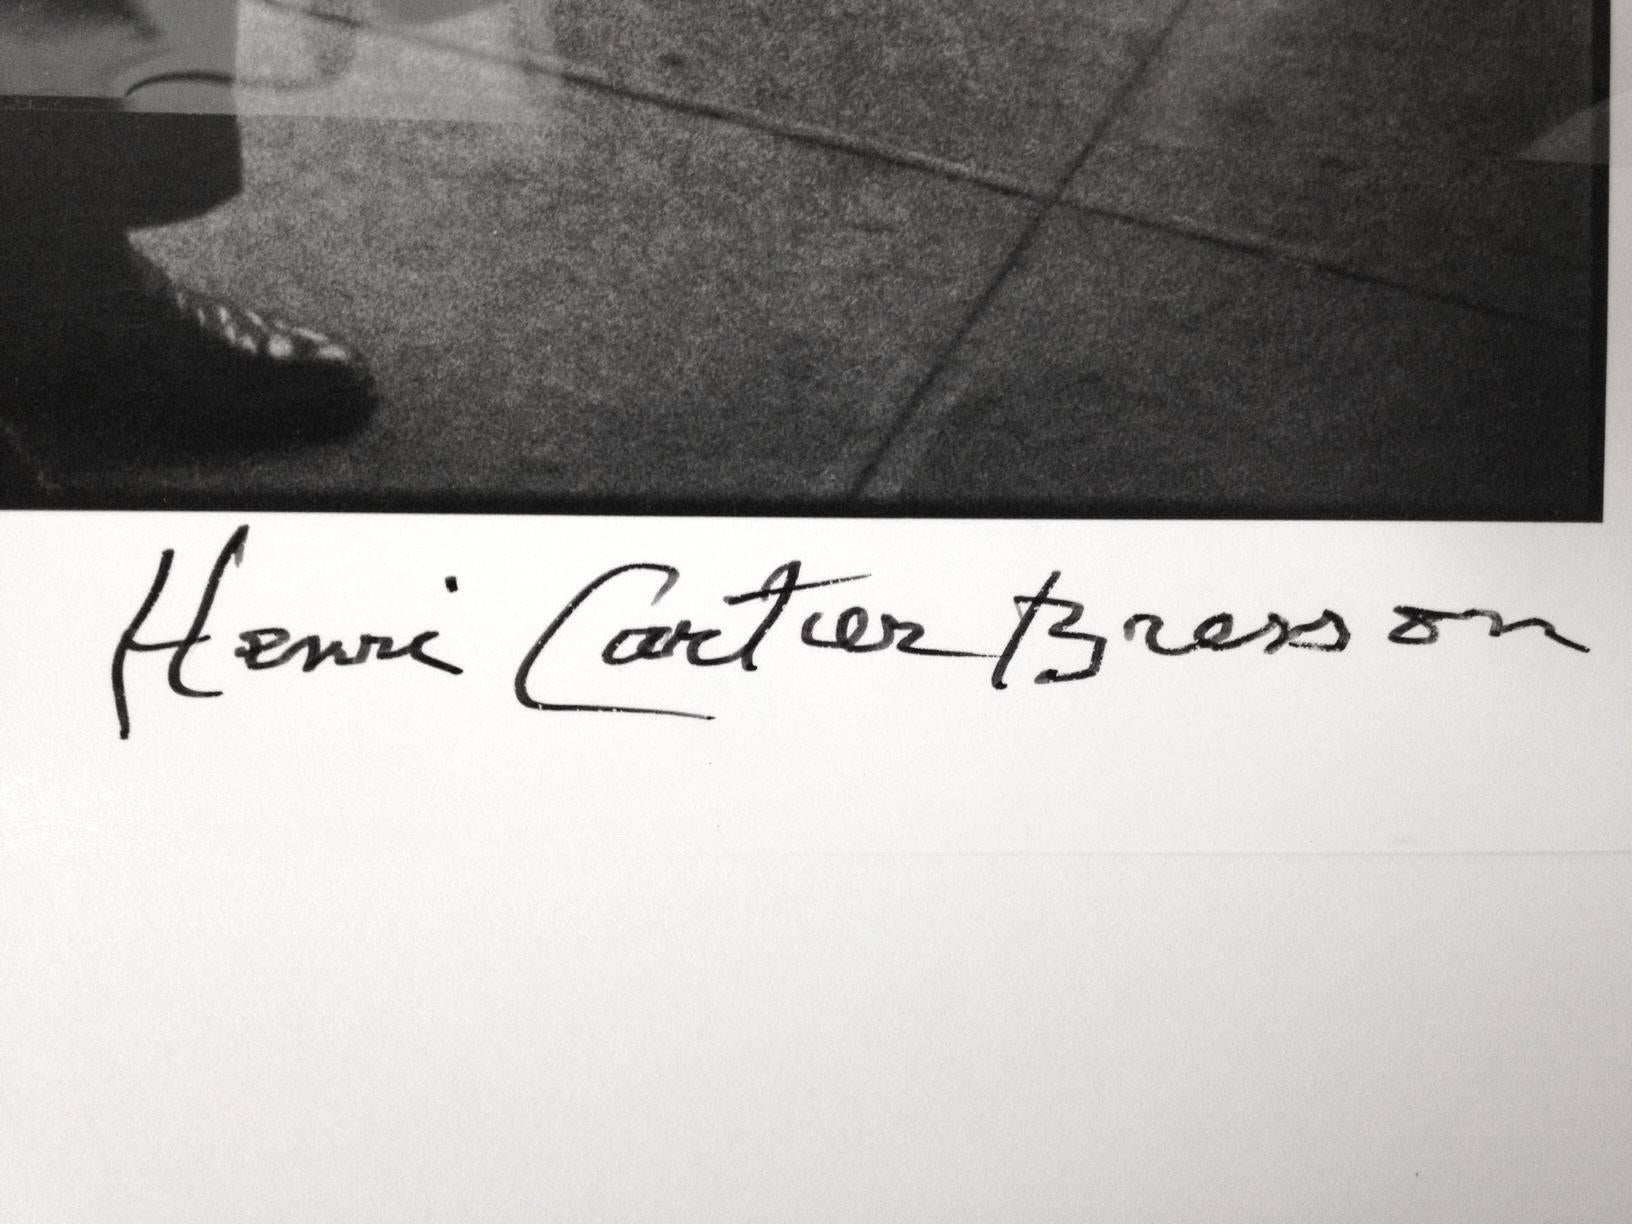 Henri Cartier Bresson